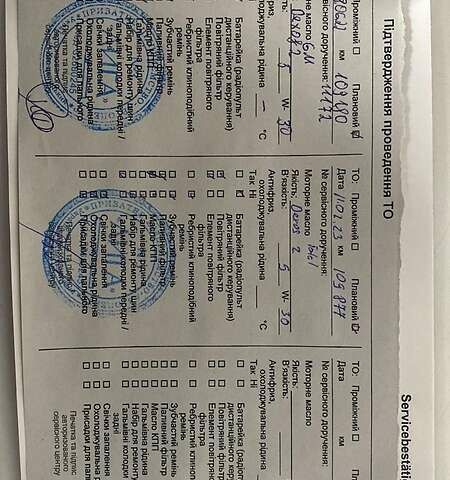 Servicebestäti
Підтвердження проведення ТО
Проміжний ☐ Плановий ☑
км 109190
№ сервісного доручення: 11172
Моторне масло GM
Якість: Dexos 2
5 W 30
Антифриз,
охолоджувальна рідина – °C
Батарейка (радіопульт
дистанційного керування)
Повітряний фільтр
Елемент повітряного
фільтра
Ребристий клиноподібний
ремінь
Зубчастий ремінь
Паливний фільтр
Масло КПП
Набір для ремонту шин
Гальмівні колодки передні /
задні
Свічки запалювання
Охолоджувальна рідина
Присадки для пального
Печатка та підпис
ТО: Проміжний ☐ Плановий ☑
Дата 11.01.23 км 109877
№ сервісного доручення:
Моторне масло Total
Якість: Dexos 2
В'язкість: 5 W 30
Антифриз,
охолоджувальна рідина °C
Так Ні
Батарейка (радіопульт
дистанційного керування)
Повітряний фільтр
Елемент повітряного
фільтра
Ребристий клиноподібний
ремінь
Зубчастий ремінь
Паливний фільтр
Масло КПП
Гальмівна рідина
Набір для ремонту шин
Гальмівні колодки передні /
задні
Свічки запалювання
Охолоджувальна рідина
Присадки для пального
ТО: Проміжний ☐
Дата км
№ сервісного доручення:
Моторне масло
Якість:
В'язкість:
Антифриз,
охолоджувальна рідина
Так Ні
Батарейка (радіопульт
дистанційного
Повітряний фільтр
Елемент повітряного
фільтра
Ребристий
ремінь
Зубчастий ремінь
Паливний фільтр
Масло КПП
Гальмівна рідина
Набір для ремонту
Гальмівні колодки
задні
Свічки запалення
Охолоджувальна
Присадки для
Печатка та підпис
авторизованого
сервісного центру